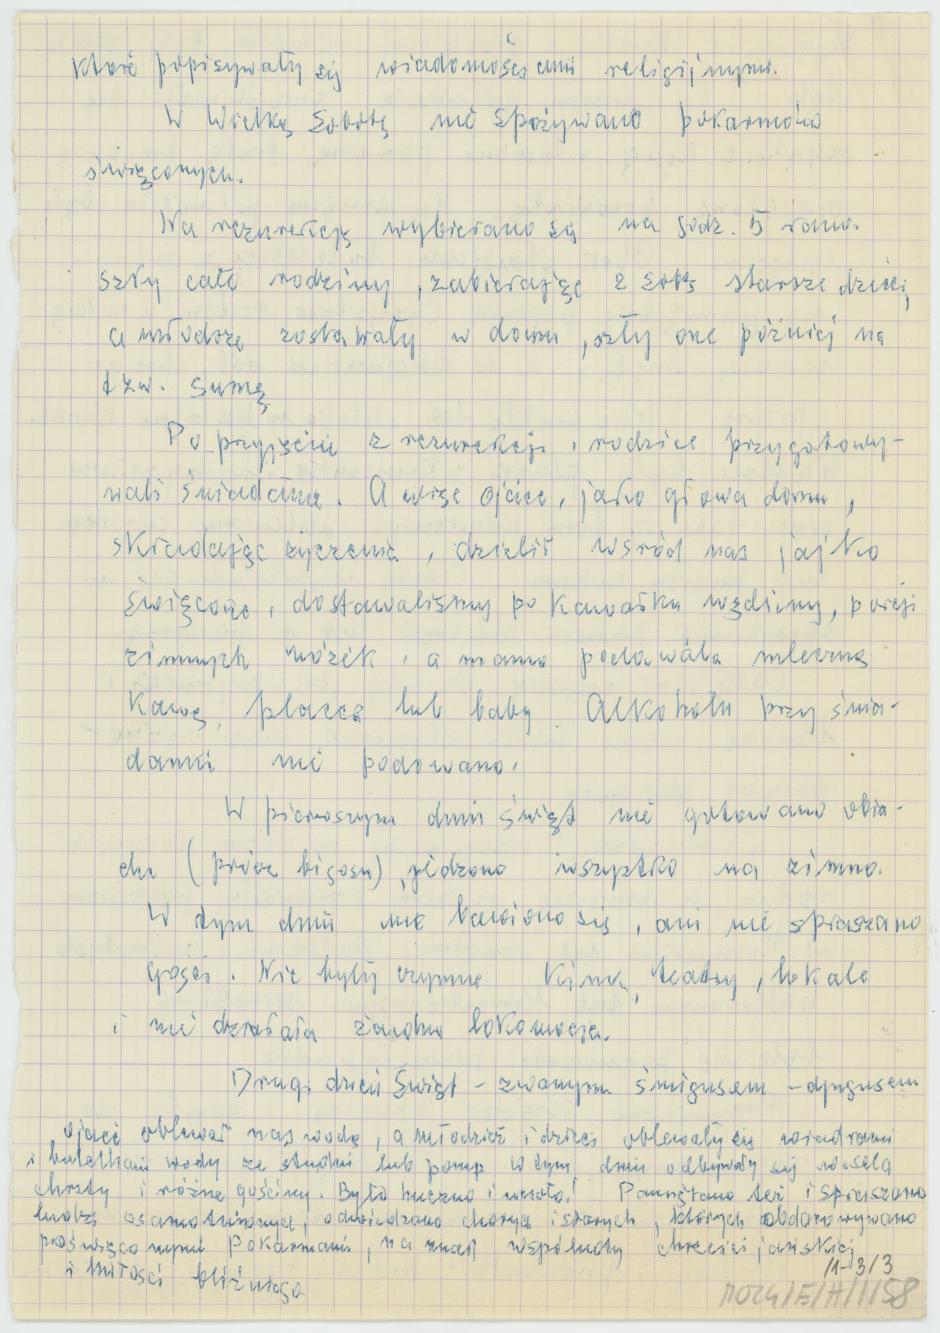 które popisywały się wiadomościami religijnymi.
W Wielką Sobotę nie spożywano pokarmów
święconych.
Na rezurekcję wybierano się na godz. 5 rano.
szły całe rodziny, zabierając z sobą starsze dzieci,
a młodsze zostawały w domu, szły one później na
tzw. sumę
Po przyjściu z rezurekcji, rodzice przygotowy-
wali śniadanie. A więc ojciec, jako głowa domu,
składając życzenia, dzielił wśród nas jajko
święcone, dostawaliśmy po kawałku wędliny, porcji
zimnych nóżek, a mama podawała mleczną
kawę, placek lub baby. Alkoholu przy śnia-
daniu nie podawano.
W pierwszym dniu świąt nie gotowano obia-
du (prócz bigosu), jedzono wszystko na zimno.
W tym dniu nie bawiono się, ani nie spraszano
gości. Nie były czynne kina, teatry, lokale
i nie działała żadna lokomocja.
Drugi dzień Świąt - zwanym śmigusem - dyngusem
ojciec oblewał nas wodą, a młodzież i dzieci oblewały się wiadrami
i butelkami wody ze studni lub pomp W tym dniu odbywały się wesela
chrzty i różne gościny. Było huczno i wesoło! Pamiętano też i spraszano
ludzi osamotnionych, odwiedzano chorych i starych, których obdarowywano
poświęconymi pokarmami, na znak wspólnoty chrześcijańskiej
i miłości bliźniego
11-3/3
MOZG/E/A/1/58